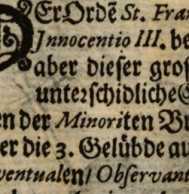 DEr Ordẽ St. Fra
Innocentio III. be
aber dieser gros
unterschidliche
en der Minoriten Br
er die 3. Gelübde au
ventualen/ Observan